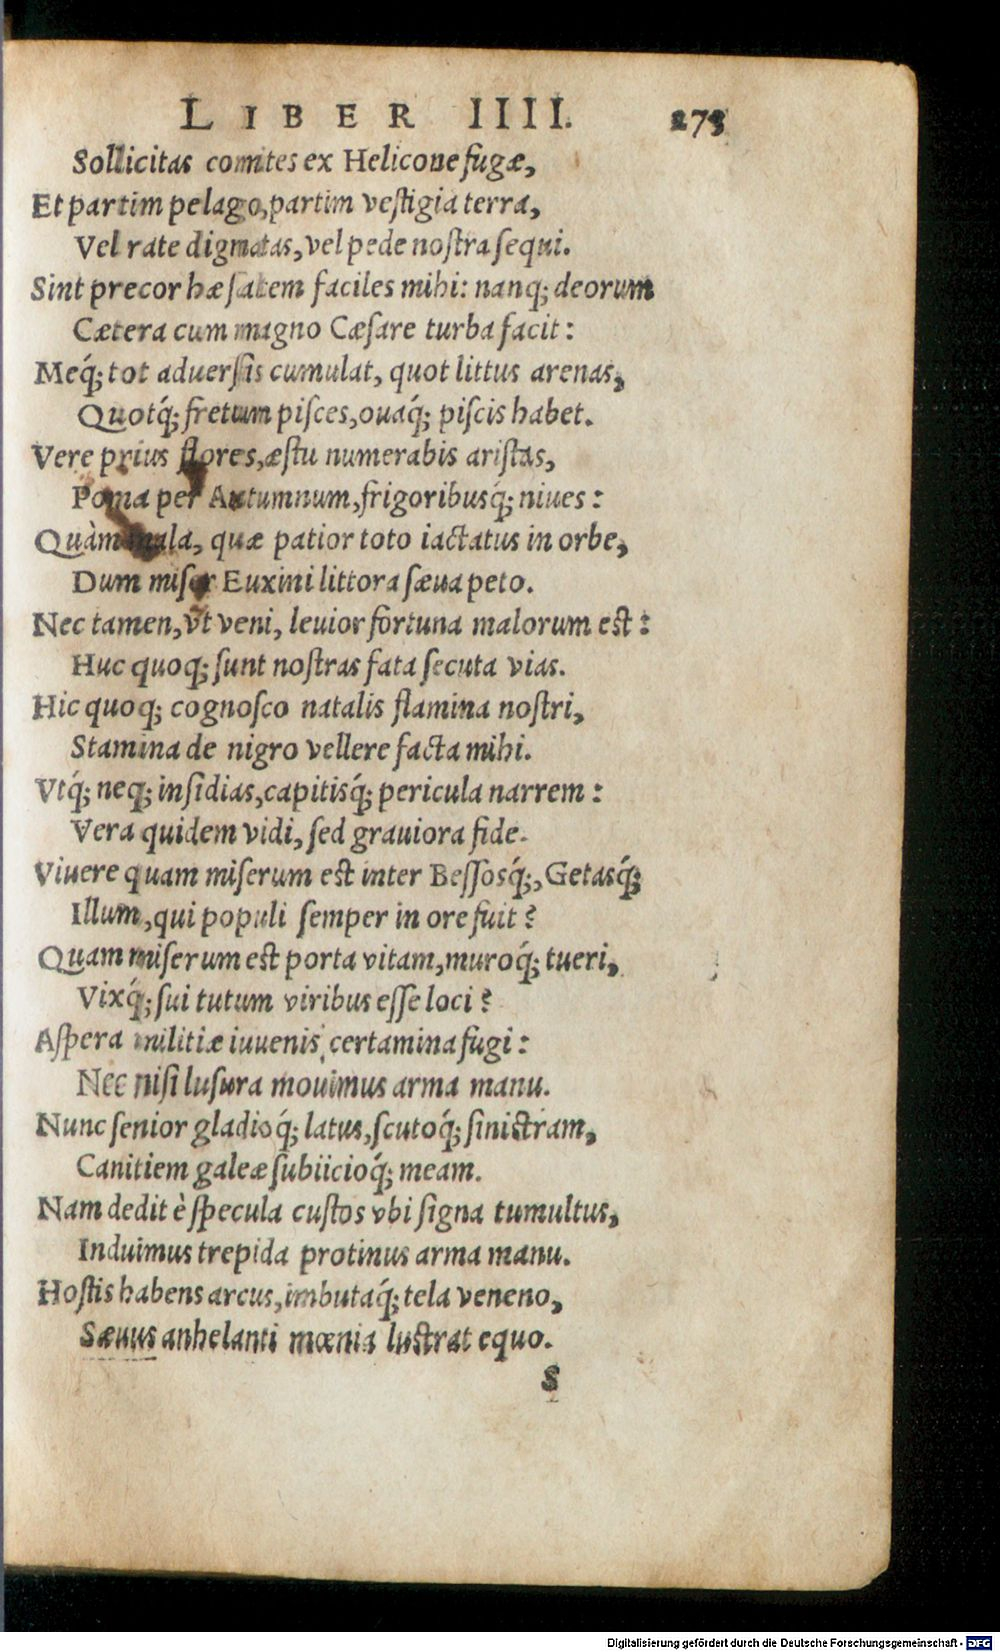 LIBER IIII. 273
Sollicitas comites ex Helicone fugæ,
Et partim pelago, partim veſtigia terra,
Vel rate dignatas, vel pede noſtra ſequi.
Sint precor hæ ſaltem faciles mihi: nanq; deorum
Cætera cum magno Cæſare turba facit:
Meq́; tot aduerſis cumulat, quot littus arenas,
Quotq́; fretum piſces, ouaq́; piſcis habet.
Vere prius flores, æſtu numerabis ariſtas,
Poma per Autumnum, frigoribusq́; niues:
Quàm mala, quæ patior toto iactatus in orbe,
Dum miſer Euxini littora ſæua peto.
Nec tamen, vt veni, leuior fortuna malorum est:
Huc quoq; ſunt noſtras fata ſecuta vias.
Hic quoq; cognoſco natalis flamina noſtri,
Stamina de nigro vellere facta mihi.
Vtq́; neq; inſidias, capitisq́; pericula narrem:
Vera quidem vidi, ſed grauiora fide.
Viuere quam miſerum est inter Beſſosq́;, Getasq́;
Illum, qui populi ſemper in ore fuit?
Quam miſerum est porta vitam, muroq́; tueri,
Vixq́; ſui tutum viribus eſſe loci?
Aſpera militiæ iuuenis certamina fugi:
Nec niſi luſura mouimus arma manu.
Nunc ſenior gladioq́; latus, ſcutoq́; ſiniſtram,
Canitiem galeæ ſubiicioq́; meam.
Nam dedit è ſpecula cuſtos vbi ſigna tumultus,
Induimus trepida protinus arma manu.
Hoſtis habens arcus, imbutaq́; tela veneno,
Sæuus anhelanti mœnia luſtrat equo.
S
Digitalisierung gefördert durch die Deutsche Forschungsgemeinschaft - DFG